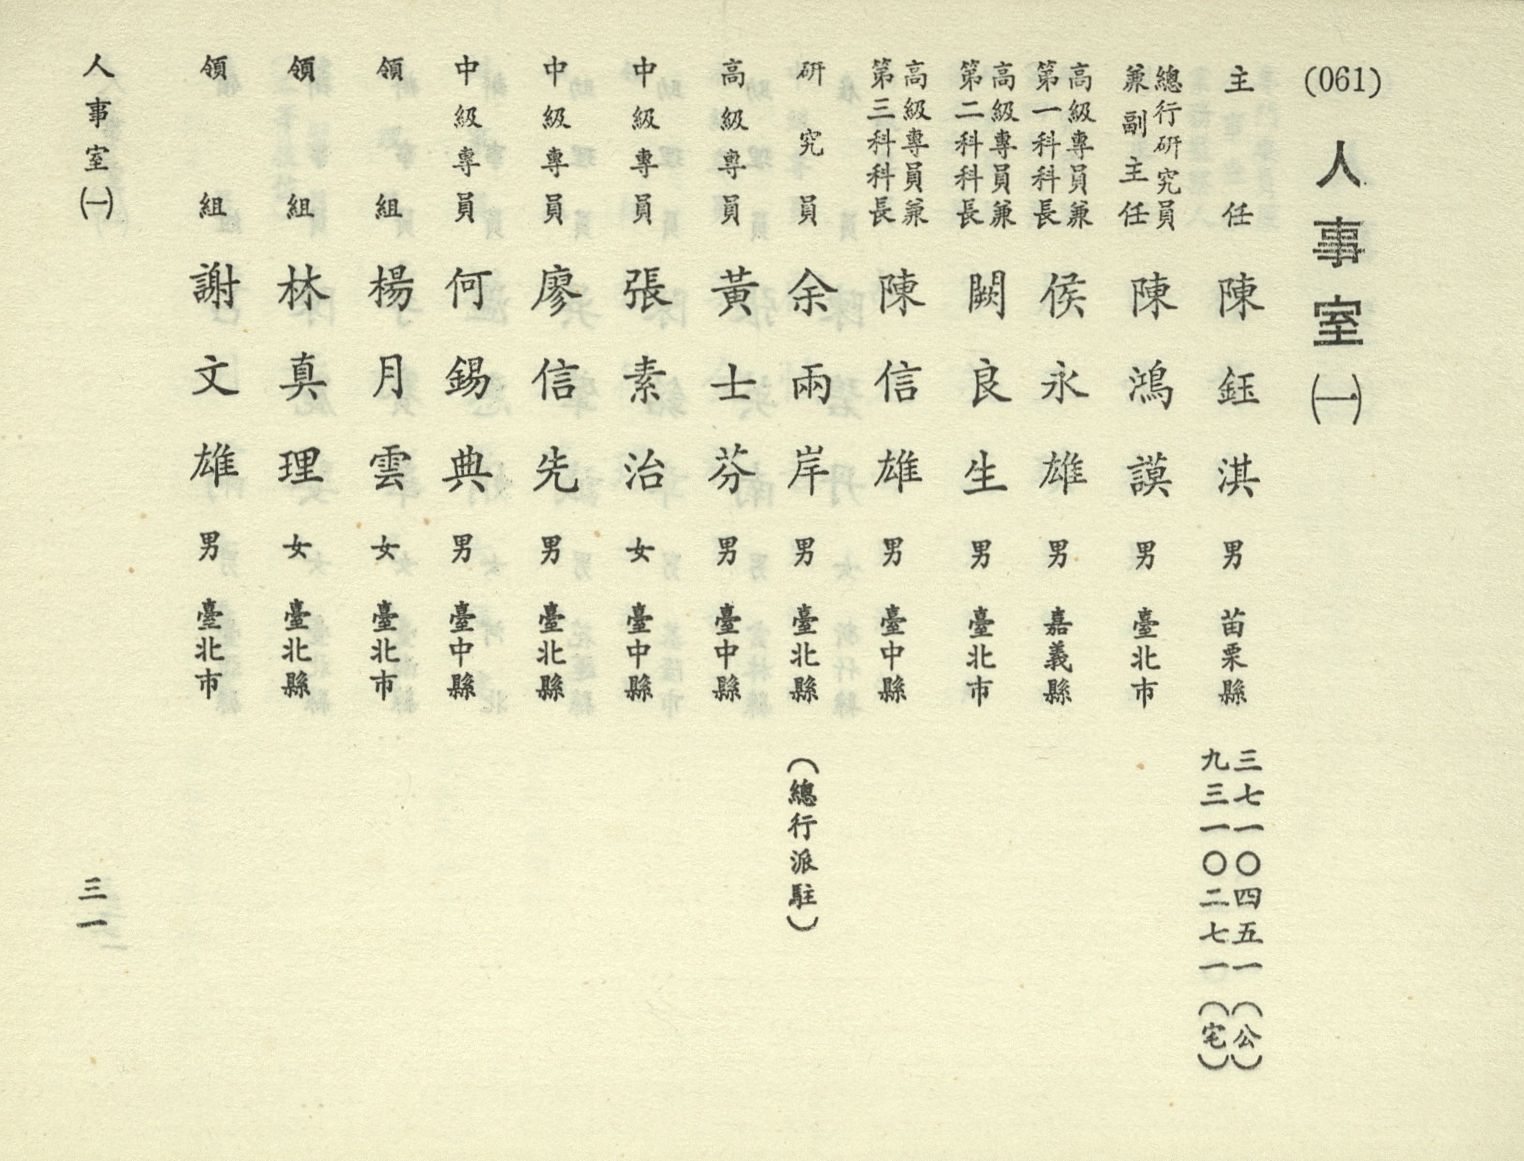 (061) 人事室㈠
主任 陳鈺淇 男 苗栗縣 三七一〇四五一(公)
九三一〇二七一(宅)
總行研究員兼副主任 陳鴻謨 男 臺北市
高級專員兼第一科科長 侯永雄 男 嘉義縣
高級專員兼第二科科長 闕良生 男 臺北市
高級專員兼第三科科長 陳信雄 男 臺中縣
研究員 余兩岸 男 臺北縣 (總行派駐)
高級專員 黃士芬 男 臺中縣
中級專員 張素治 女 臺中縣
中級專員 廖信先 男 臺北縣
中級專員 何錫典 男 臺中縣
領組 楊月雲 女 臺北市
領組 林真理 女 臺北縣
領組 謝文雄 男 臺北市
人事室㈠ 三一